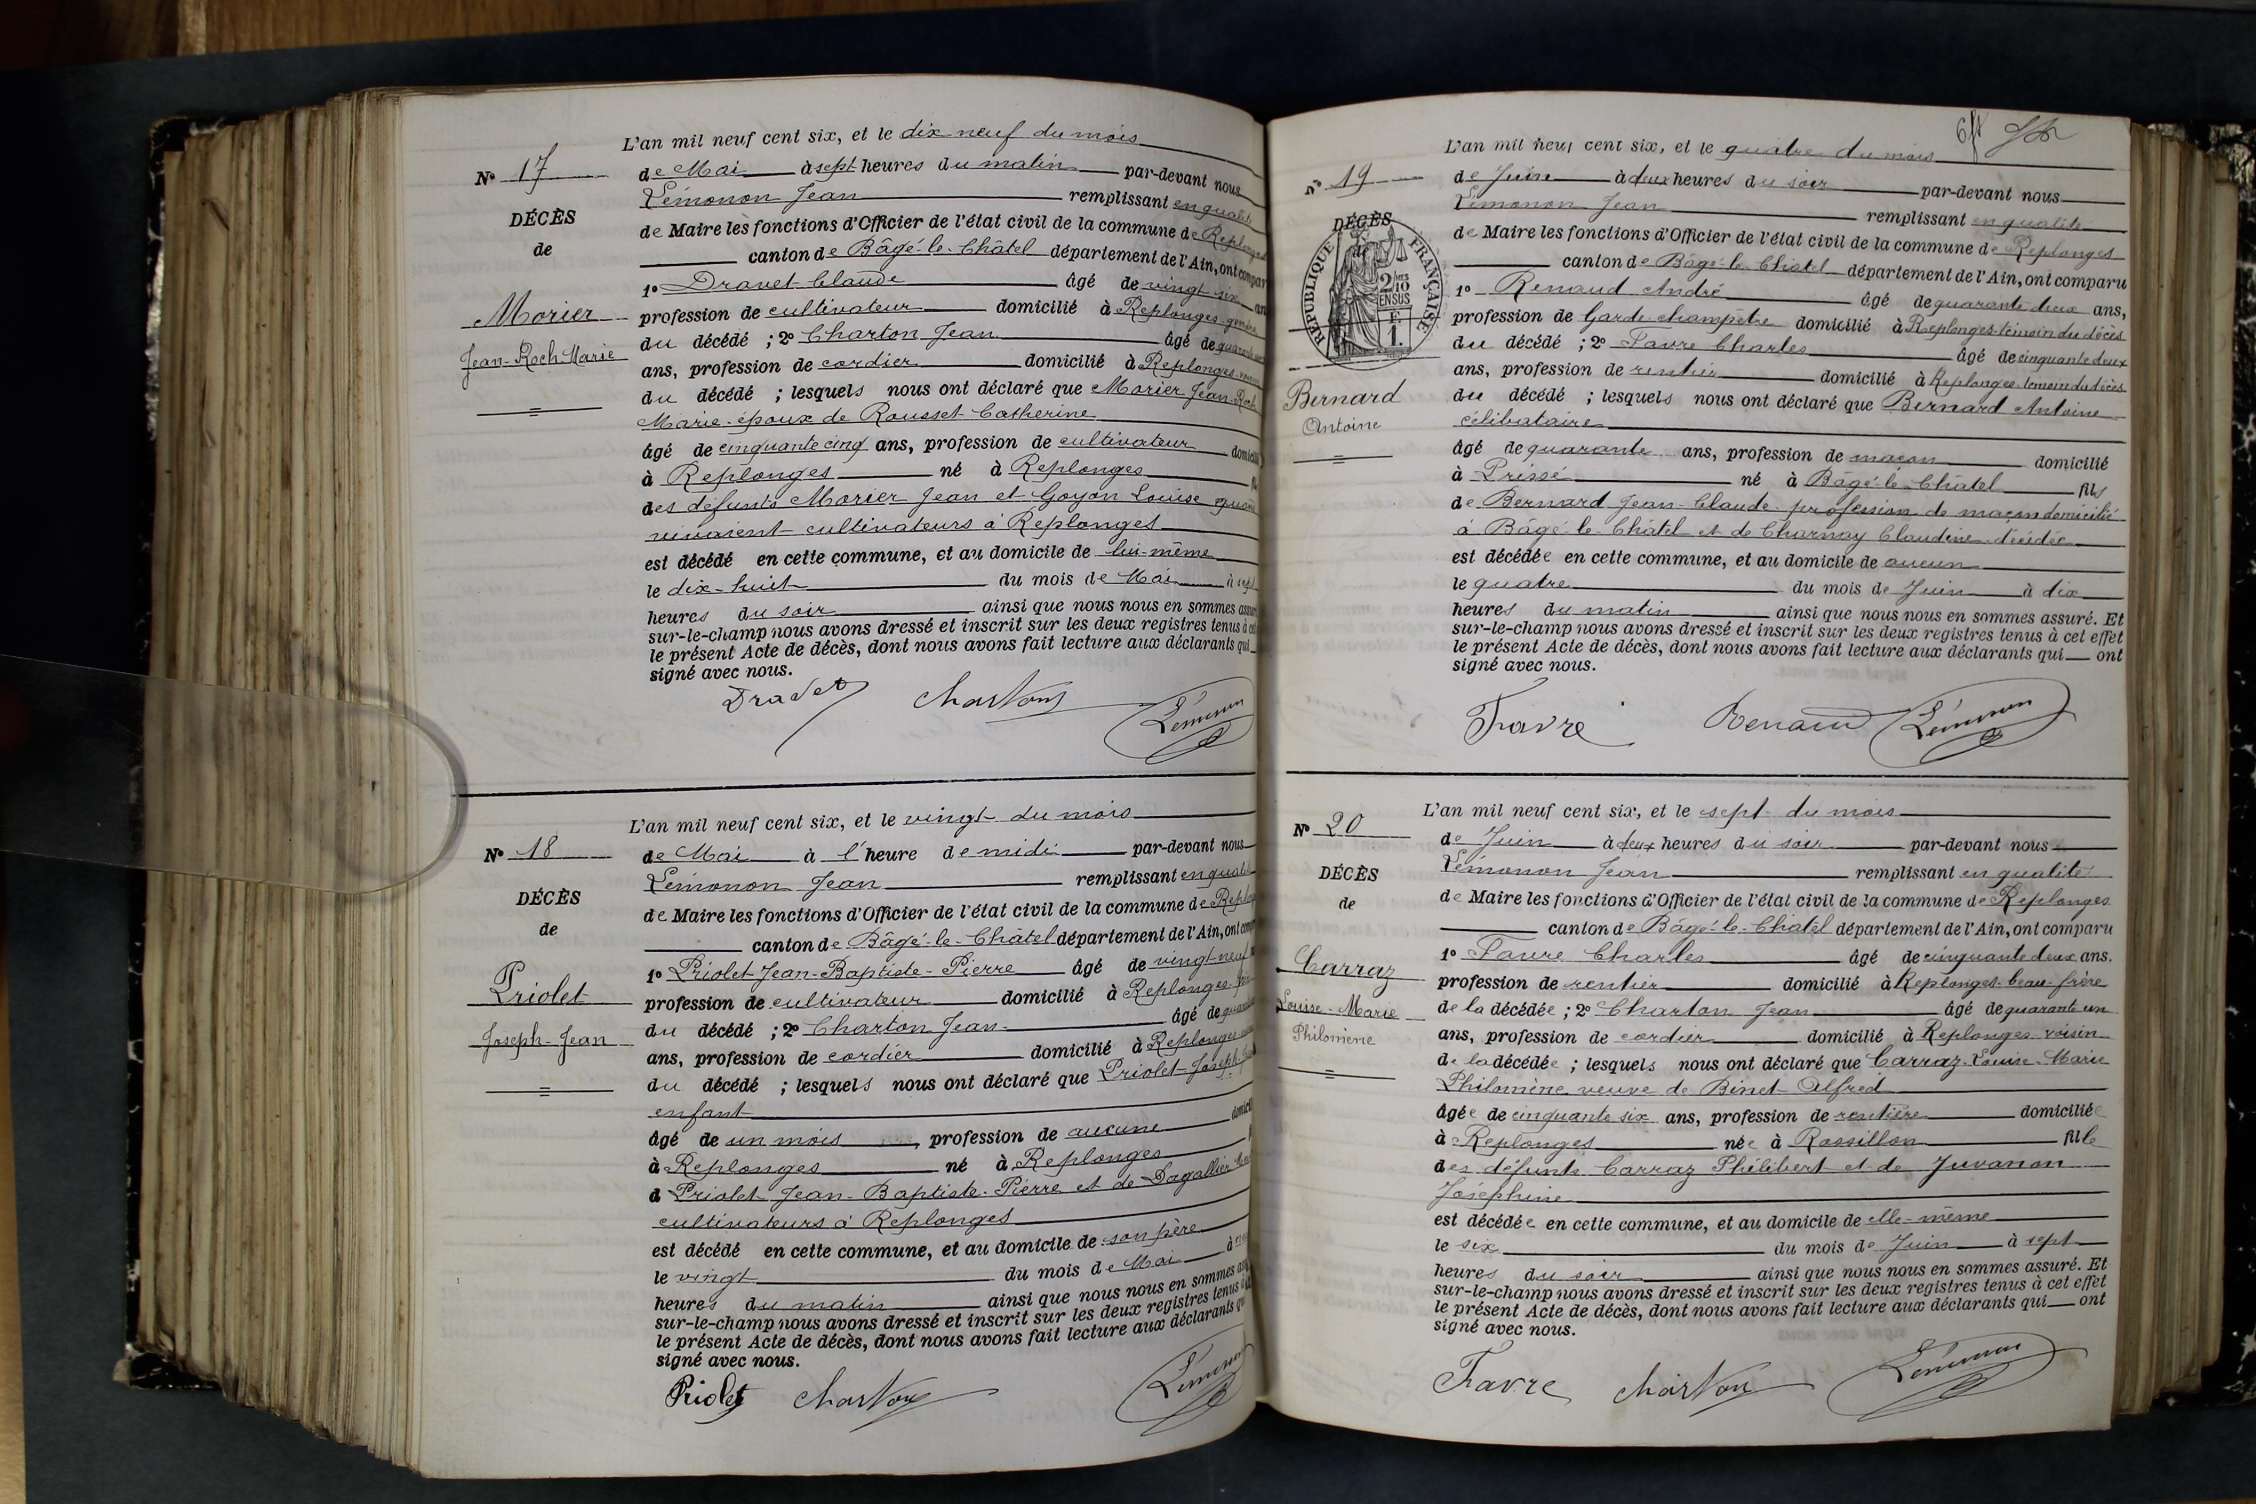 L'an mil neuf cent six, et le dix neuf du mois
N° 17
de Mai à sept heures du matin par-devant nous
Lémonon Jean remplissant en qualité
DÉCÈS
de Maire les fonctions d'Officier de l'état civil de la commune de Replonges
de
canton de Bâgé-le-Châtel département de l'Ain, ont compar
1° Dravet Claude âgé de vingt six an
Morier
profession de cultivateur domicilié à Replonges gendre
Jean-Roch Marie
du décédé ; 2° Charton Jean âgé de
ans, profession de cordier domicilié à Replonges
du décédé ; lesquels nous ont déclaré que Morier Jean Roch
Marie époux de Rousset Catherine
âgé de cinquante cinq ans, profession de cultivateur domicilié
à Replonges né à Replonges
des défunts Morier Jean et Goyon Louise quand
vivaient cultivateurs à Replonges
est décédé en cette commune, et au domicile de lui-même
le dix-huit du mois de Mai à sept
heures du soir ainsi que nous nous en sommes assur
sur-le-champ nous avons dressé et inscrit sur les deux registres tenus à cet
le présent Acte de décès, dont nous avons fait lecture aux déclarants qui
signé avec nous.
Dravet Charton Lémonon
L'an mil neuf cent six, et le vingt du mois
N° 18
de Mai à l'heure de midi par-devant nous
Lémonon Jean remplissant en qualité
DÉCÈS
de Maire les fonctions d'Officier de l'état civil de la commune de Replo
de
canton de Bâgé-le-Châtel département de l'Ain, ont compa
1° Priolet Jean-Baptiste-Pierre âgé de vingt-neuf
Priolet
profession de cultivateur domicilié à Replonges père
Joseph-Jean
du décédé ; 2° Charton Jean âgé de
ans, profession de cordier domicilié à Replonges
du décédé ; lesquels nous ont déclaré que Priolet Joseph
enfant
âgé de un mois, profession de aucune domicil
à Replonges né à Replonges
d Priolet Jean-Baptiste-Pierre et de Dagallier
cultivateurs à Replonges
est décédé en cette commune, et au domicile de son père
le vingt du mois de Mai à
heures du matin ainsi que nous nous en sommes ass
sur-le-champ nous avons dressé et inscrit sur les deux registres tenus à
le présent Acte de décès, dont nous avons fait lecture aux déclarants qu
signé avec nous.
Priolet Charton Lémonon
L'an mil neuf cent six, et le quatre du mois
N° 19
de Juin à deux heures du soir par-devant nous
Lémonon Jean remplissant en qualité
DÉCÈS
de
RÉPUBLIQUE FRANÇAISE
2/10 EN SUS
F. 1.
de Maire les fonctions d'Officier de l'état civil de la commune de Replonges
canton de Bâgé-le-Châtel département de l'Ain, ont comparu
1° Renaud André âgé de quarante deux ans,
profession de Garde champêtre domicilié à Replonges témoin du décès
du décédé ; 2° Favre Charles âgé de cinquante deux
ans, profession de rentier domicilié à Replonges témoin du décès
Bernard
Antoine
du décédé ; lesquels nous ont déclaré que Bernard Antoine
célibataire
âgé de quarante ans, profession de maçon domicilié
à Prissé né à Bâgé-le-Châtel fils
de Bernard Jean-Claude profession de maçon domicilié
à Bâgé-le-Châtel et de Charnay Claudine décédée
est décédée en cette commune, et au domicile de aucun
le quatre du mois de Juin à dix
heures du matin ainsi que nous nous en sommes assuré. Et
sur-le-champ nous avons dressé et inscrit sur les deux registres tenus à cet effet
le présent Acte de décès, dont nous avons fait lecture aux déclarants qui ont
signé avec nous.
Favre Renaud Lémonon
L'an mil neuf cent six, et le sept du mois
N° 20
de Juin à deux heures du soir par-devant nous
Lémonon Jean remplissant en qualité
DÉCÈS
de Maire les fonctions d'Officier de l'état civil de la commune de Replonges
de
canton de Bâgé-le-Châtel département de l'Ain, ont comparu
1° Favre Charles âgé de cinquante deux ans.
Carraz
profession de rentier domicilié à Replonges-beau-frère
Louise-Marie
de la décédée ; 2° Charton Jean âgé de quarante un
Philomène
ans, profession de cordier domicilié à Replonges voisin
de la décédée ; lesquels nous ont déclaré que Carraz Louise-Marie
Philomène veuve de Binet Alfred
âgée de cinquante six ans, profession de rentière domiciliée
à Replonges née à Rossillon fille
des défunts Carraz Phélibert et de Juvanon
Joséphine
est décédée en cette commune, et au domicile de elle-même
le six du mois de Juin à sept
heures du soir ainsi que nous nous en sommes assuré. Et
sur-le-champ nous avons dressé et inscrit sur les deux registres tenus à cet effet
le présent Acte de décès, dont nous avons fait lecture aux déclarants qui ont
signé avec nous.
Favre Charton Lémonon